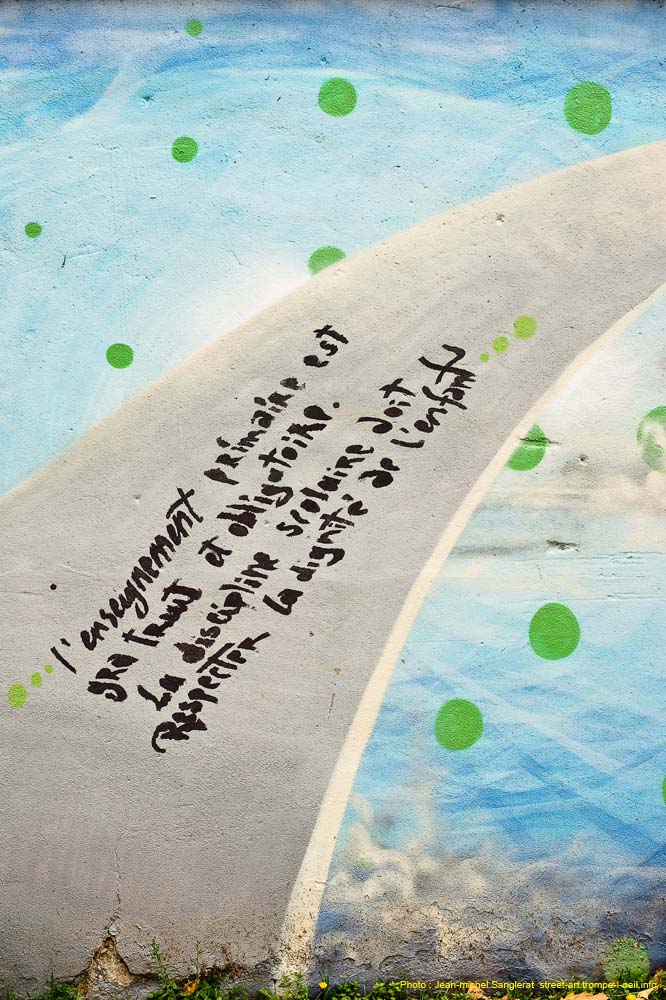 l'enseignement primaire est
gratuit et obligatoire.
La discipline scolaire doit
Respecter la dignité de l'enfant
Photo : Jean-michel Sanglerat street-art.trompe-l-oeil.info